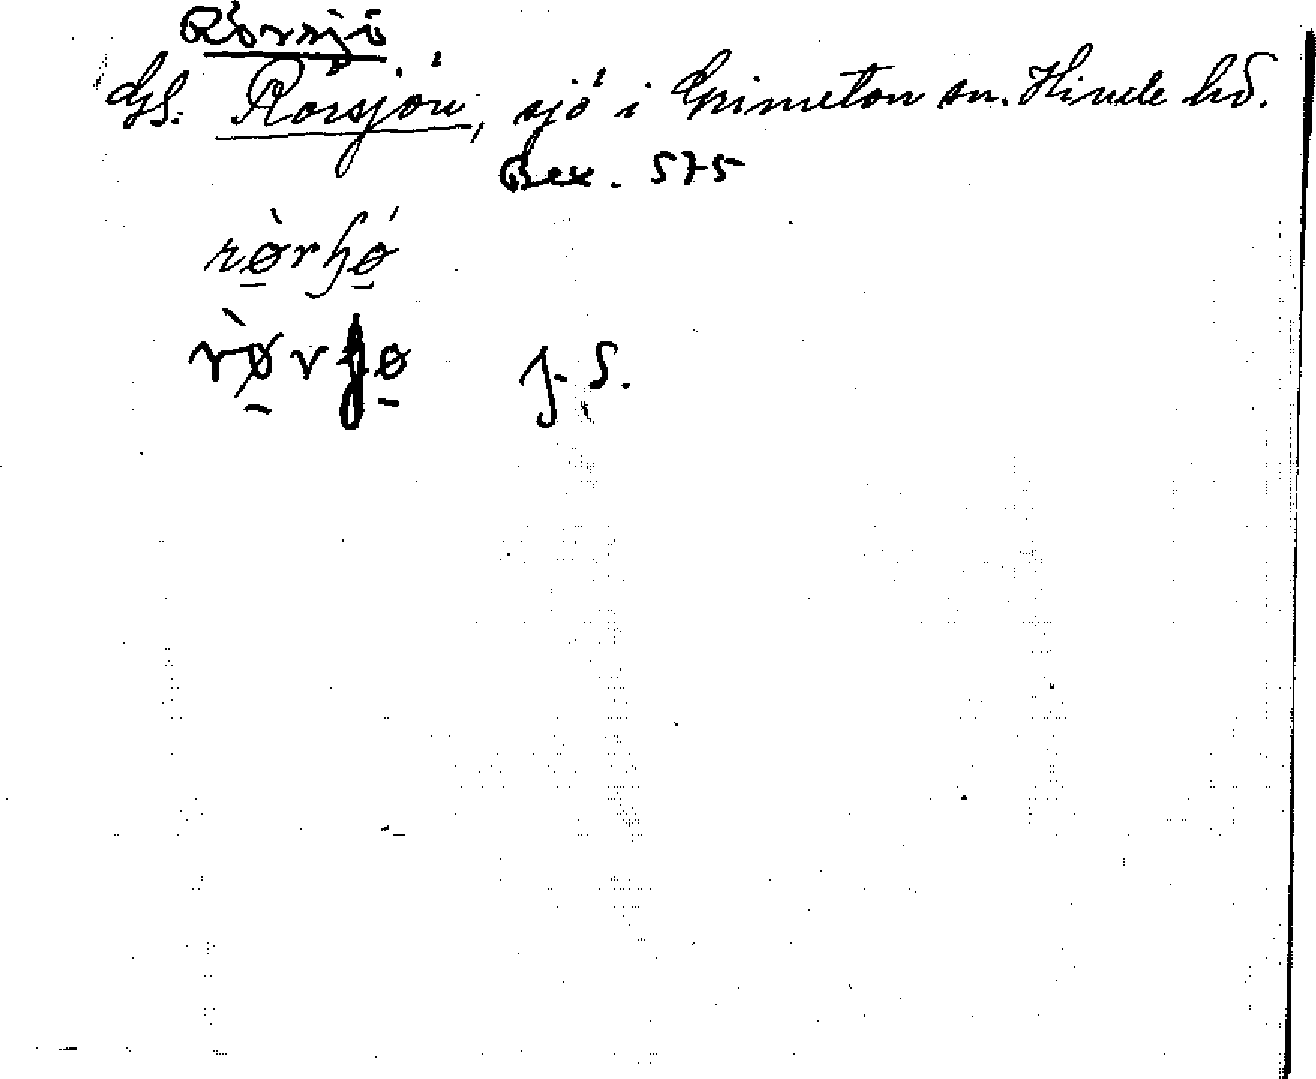 Rörsjö
Gs. Rörsjön, sjö i Grimeton sn. Himle hd.
Bex. 575
rø̀rɧǿ
rø̀rɧø J. S.